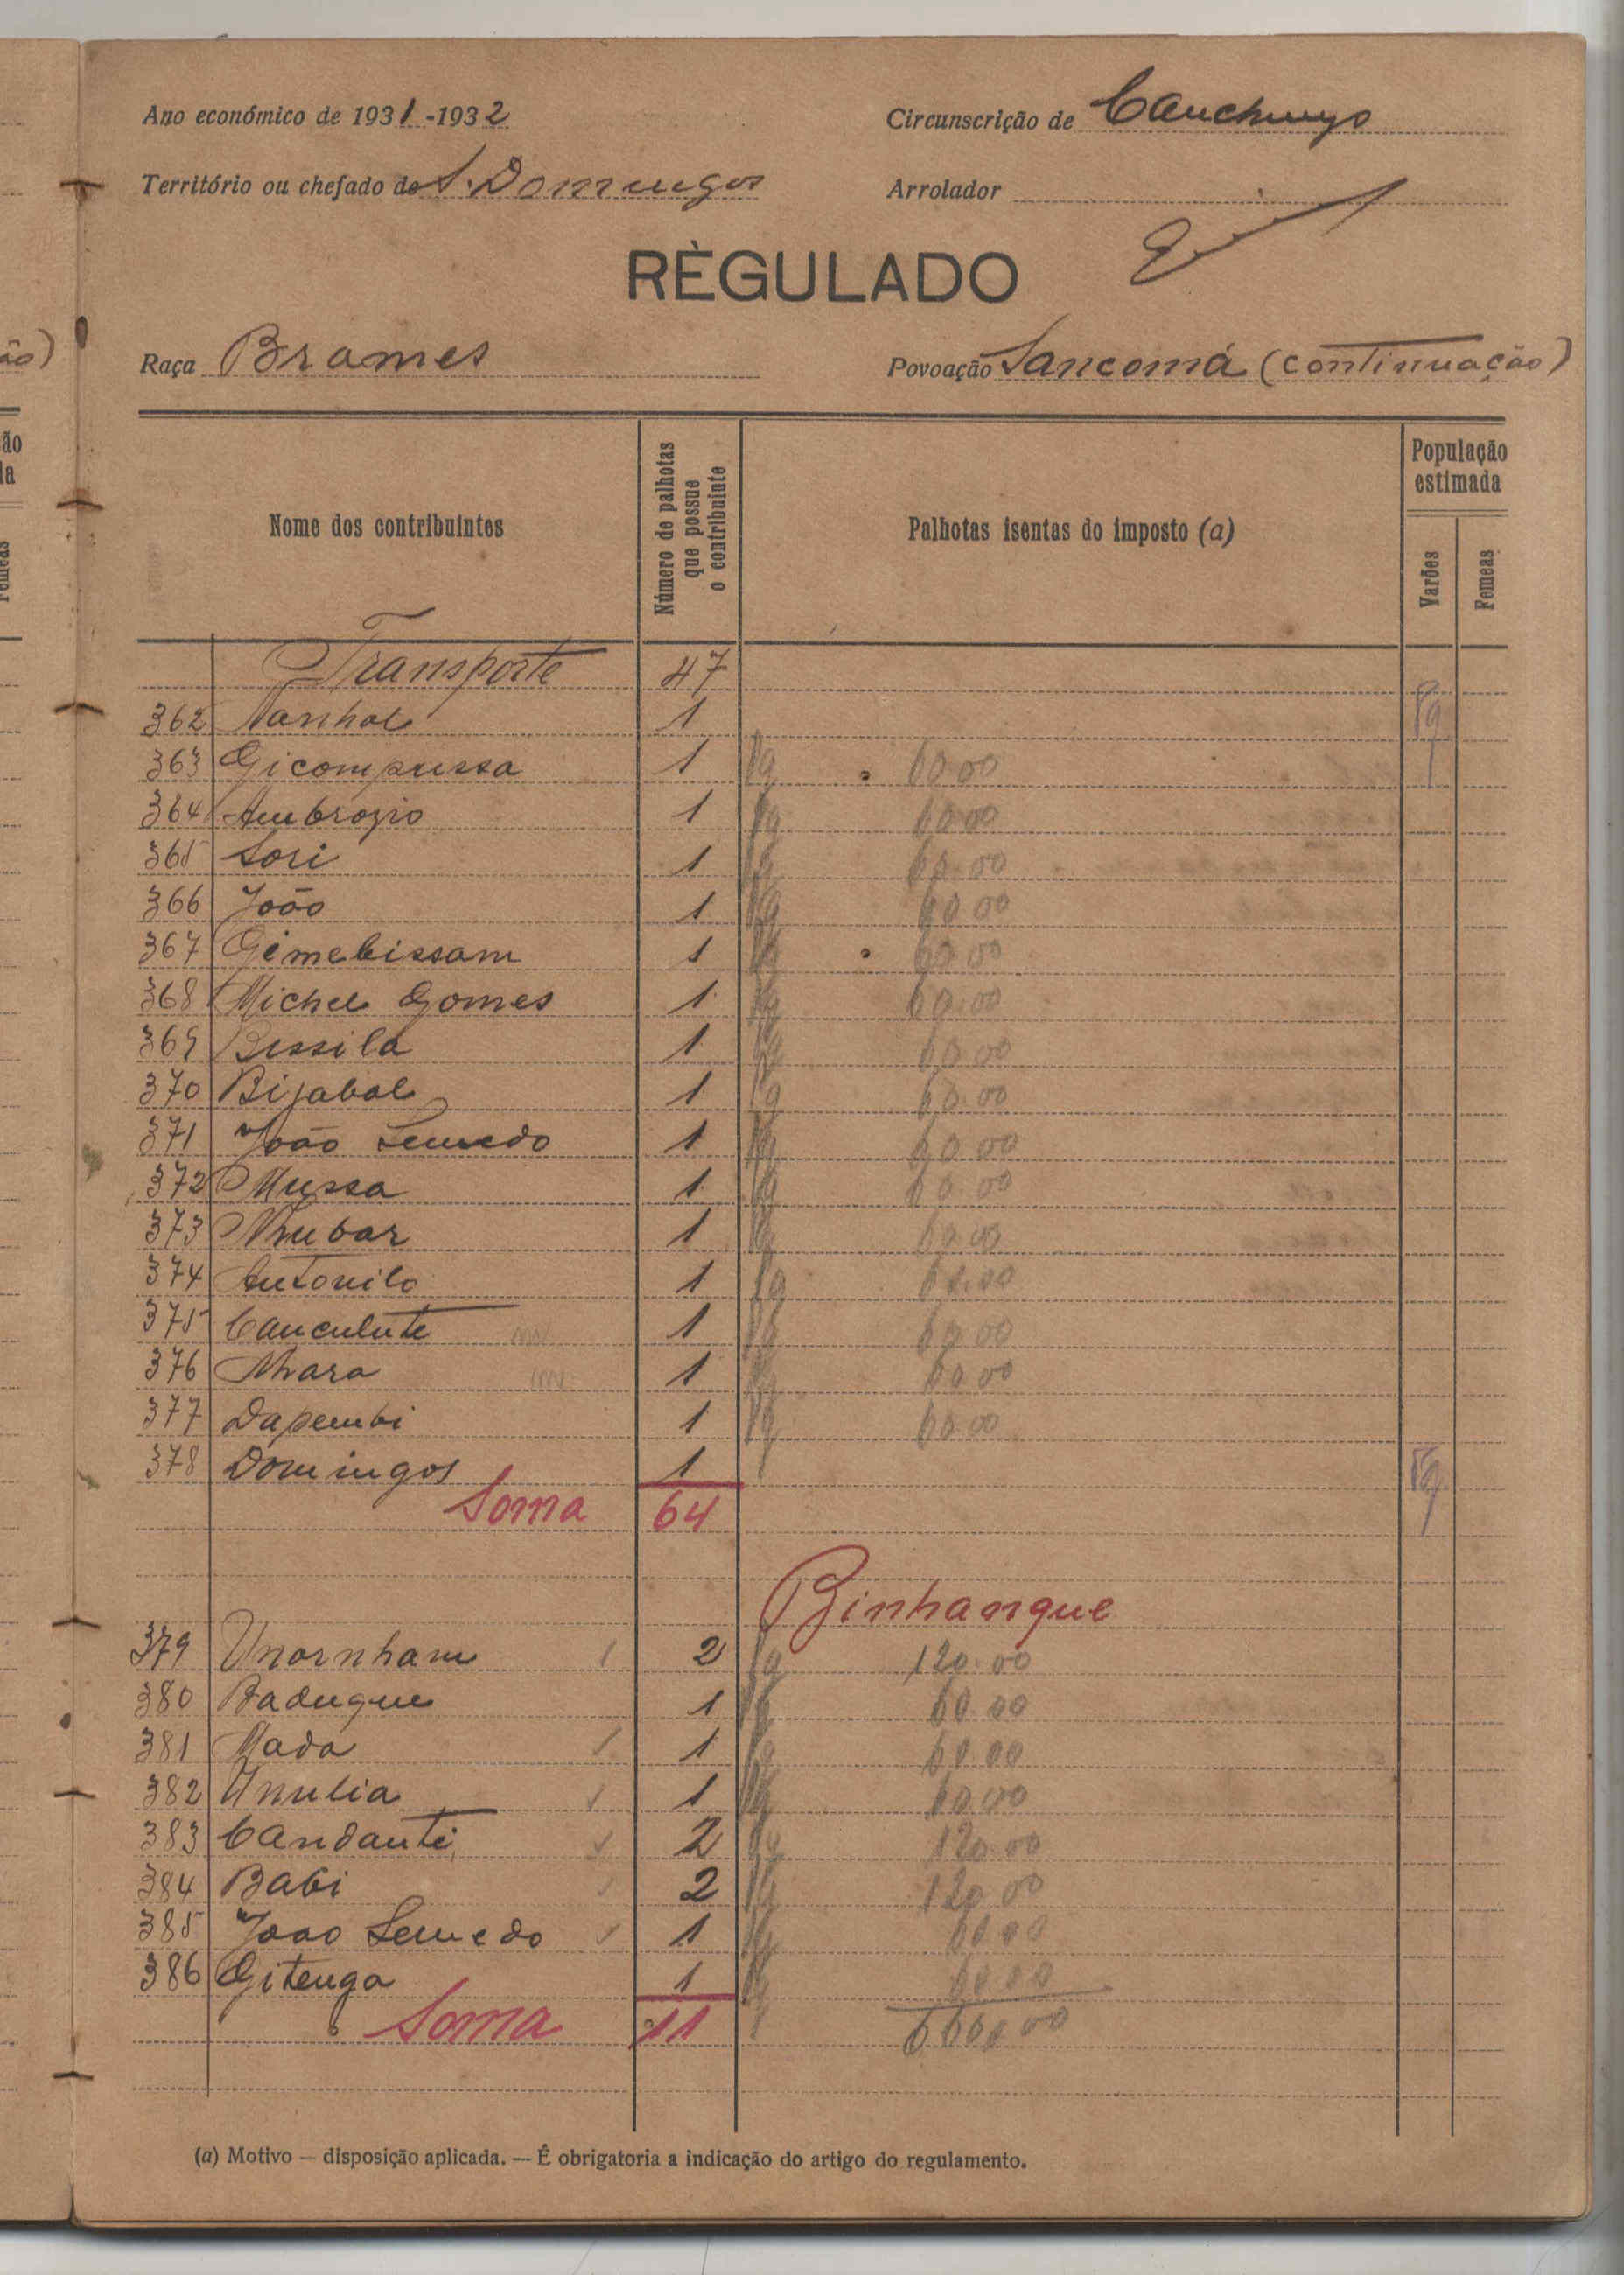 Ano económico de 1931-1932
Circunscrição de Canchungo
Território ou chefado de S. Domingos
Arrolador
RÈGULADO
Raça Brames
Povoação Sancomá (continuação)
Nome dos contribuintes
Número de palhotas que possue o contribuinte
Palhotas isentas do imposto (a)
População estimada
Varões
Femeas
Transporte 47
362 Nanhal 1 Pg
363 Gicompussa 1 Pg 60.00
364 Ambrozio 1 Pg 60.00
365 Sori 1 Pg 60.00
366 João 1 Pg 60.00
367 Gimebissam 1 Pg 60.00
368 Michel Gomes 1 Pg 60.00
369 Bissila 1 Pg 60.00
370 Bijabal 1 Pg 60.00
371 João Semedo 1 Pg 60.00
372 Mussa 1 Pg 60.00
373 Nhubar 1 Pg 60.00
374 Antonilo 1 Pg 60.00
375 Canculute 1 Pg 60.00
376 Nhara 1 Pg 60.00
377 Dapembi 1 Pg 60.00
378 Domingos 1 Pg
Soma 64
Binhanque
379 Unornham 2 Pg 120.00
380 Baduque 1 Pg 60.00
381 Mada 1 Pg 60.00
382 Unulia 1 Pg 60.00
383 Candanti 2 Pg 120.00
384 Babi 2 Pg 120.00
385 Joao Semedo 1 Pg 60.00
386 Gitenga 1 Pg 60.00
Soma 11
(a) Motivo — disposição aplicada. — É obrigatoria a indicação do artigo do regulamento.